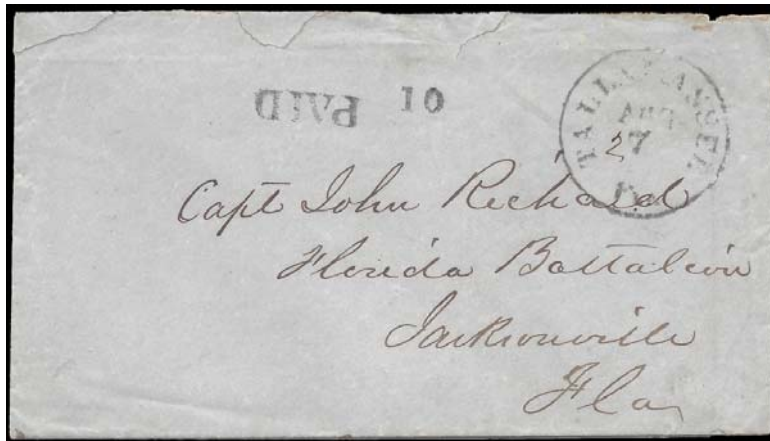 PAID 10
TALLAHASSEE
AUG
27
Capt John Richard
Florida Battaleon
Jacksonville
Fla